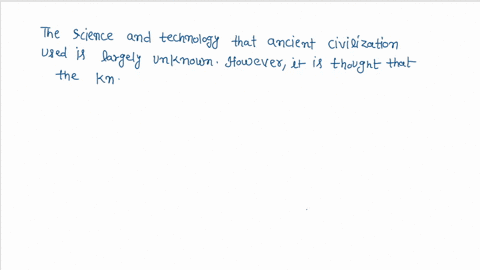 The science and technology that ancient civilization
used is largely unknown. However, it is thought that
the kn.